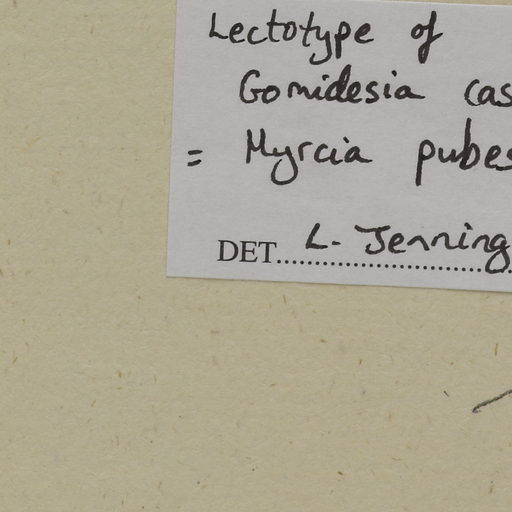 Lectotype of
Gomidesia cas
= Myrcia pubes
DET. L. Jenning